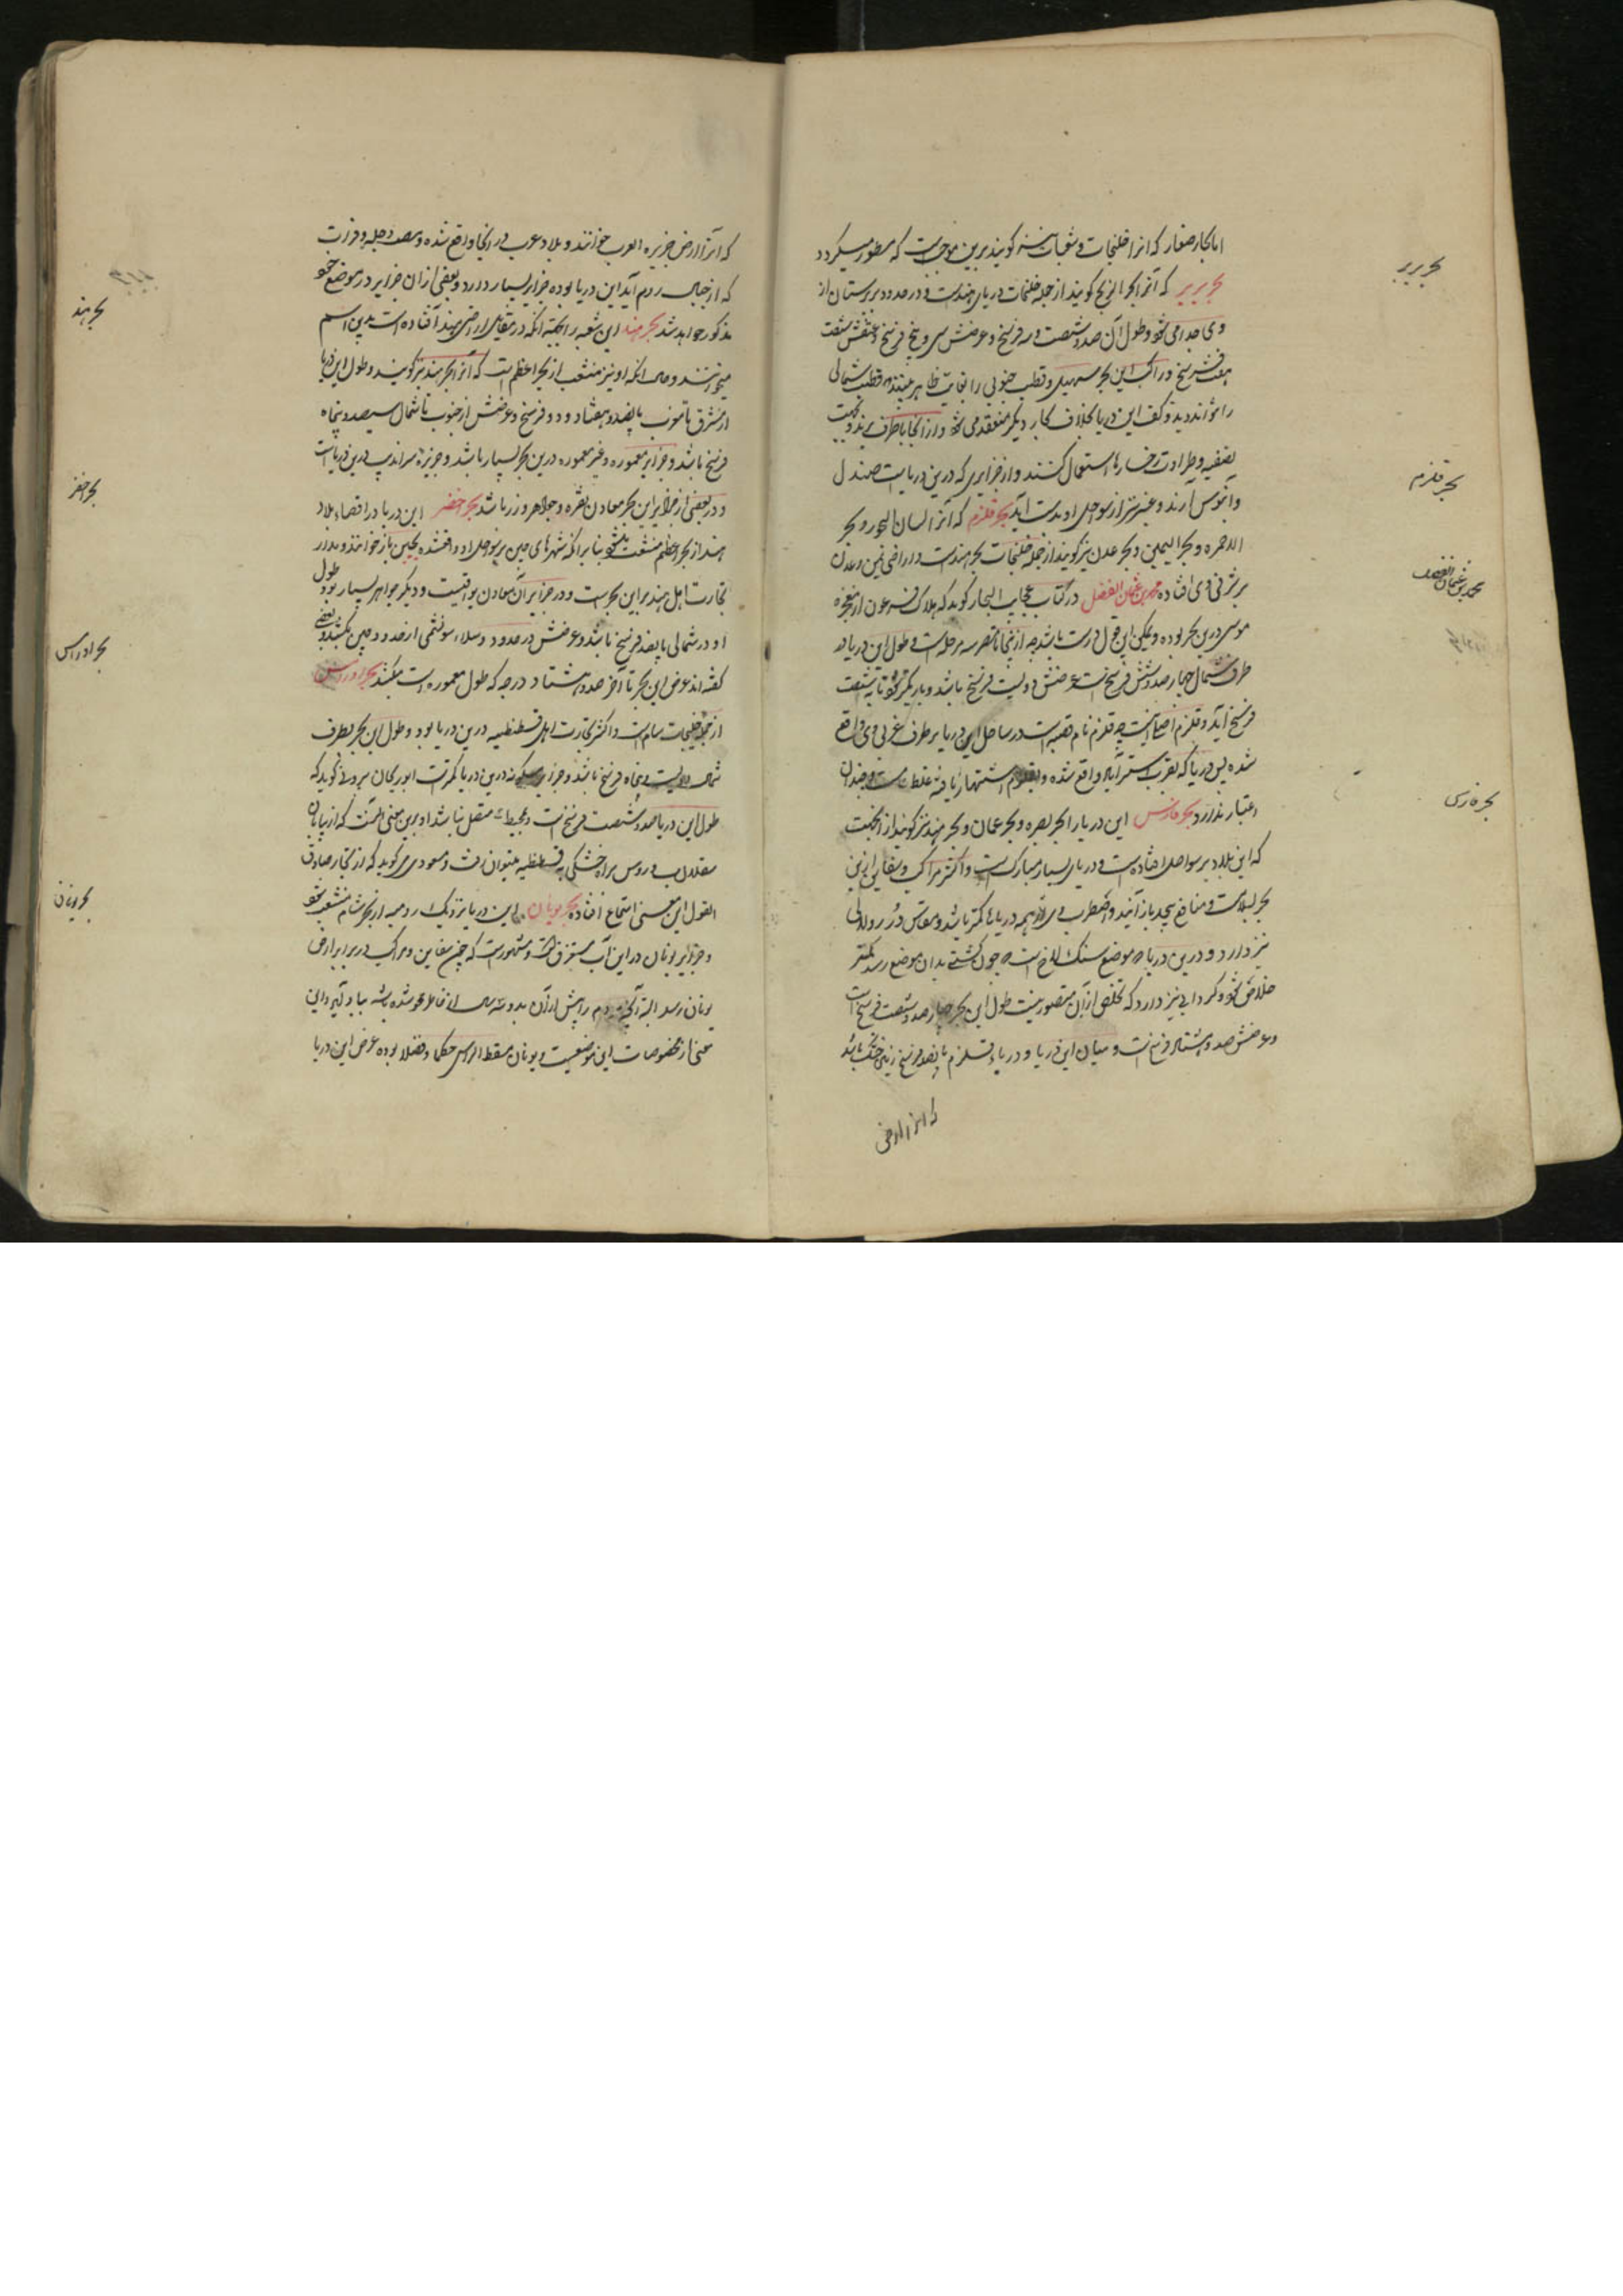 اما بحار صغار که انرا خلیجات و شعبات نیز کویند برین موجب است که مسطور میکردد
بحر بربر که آنرا بحر الزنج کویند از جمله خلیجات دریای هندست و در حدود بربرستان از
وی جدا می شود و طول آن صد و شصت و سه فرسخ و عرضش سی و پنج فرسخ و عمقش شصت
هفت فرسخ و راکب این بحر سهیل و قطب جنوبی را بغایت ظاهر بینند و قطب شمالی
را نتوانند دید و کف این دریا بخلاف بحار دیگر منعقد می شود و از انجا باطراف برند و بجهت
تصفیه و طراوت رخسارها استعمال کنند و از جزایری که درین دریاست صندل
و آبنوس آرند و عنبر نیز از سواحل او بدست آید بحر قلزم که آنرا لسان البحر و بحر
الاحمر و بحر الیمن و بحر عدن نیز کویند از جمله خلیجات بحر هندست و اراضی یمن و عدن
بر شرقی وی افتاده محمد بن عثمان الفضل در کتاب عجایب البحار کوید که هلاک فرعون از معجزه
موسی درین بحر بوده و یمکن این قول درست باشد چه از ینجا تا مصر سه مرحله است و طول این دریا از
طرف شمال چهارصد و شش فرسخ است عرضش دویست فرسخ باشد و باریکتر شود تا به شصت
فرسخ آید و قلزم نام قصبه است در ساحل این دریا بر طرف غربی وی واقع
شده پس دریا که بقرب استرآباد واقع شده و بقلزم اشتهار یافته غلط است و چندان
اعتبار ندارد بحر فارس این دریا را بحر بصره و بحر عمان و بحر هند نیز کویند از انجهت
که این بلاد بر سواحل افتاده است و دریای بسیار مبارک است و اکثر مراکب و سفاین ازین
بحر بسلامت و منافع بیحد باز آیند و اضطراب وی از همه دریاها کمتر باشد و مغاص در و لآلی
نیز دارد و درین دریا موضع سنک لاخ است چون کشتی بدان موضع رسد کمتر
خلاص شود و کردابی نیز دارد که تخلص ازان متصور نیست طول این بحر چهارصد و شصت فرسخ است
و عرضش صد و هشتاد فرسخ است و میان این دریا و دریاء قلزم پانصد فرسخ زمین خشک باشد
که انرا ارض
بحر بربر
بحر قلزم
محمد بن عثمان الفضل
بحر فارس
که آنرا ارض جزیره العرب خوانند و بلاد عرب در انجا واقع شده و مصب دجله و فرات
که از جبال روم آید این دریا بوده جزایر بسیار دارد و بعضی از ان جزایر در موضع خود
مذکور خواهد شد بحر هند این شعبه را بجهة انکه در مقابل اراضی هند افتاده است بدین اسم
میخوانند و حال انکه او نیز منشعب از بحر اعظم است که آنرا بحر هند نیز کویند و طول این دریا
از مشرق تا مغرب پانصد و هفتاد و دو فرسخ و عرضش از جنوب تا شمال سیصد و پنجاه
فرسخ باشد و جزایر معموره و غیر معموره درین بحر بسیار باشد و جزیره سراندیب درین دریاست
و در بعضی از جزایر این بحر معادن نقره و جواهر و زر باشد بحر اخضر این دریا در اقصاء بلاد
هند از بحر اعظم منشعب میشود بنا بر انکه شهرهای چین بر سواحل او واقعشده بچین باز خوانند و مدار
تجارت اهل هند بر این بحرست و در جزایر آن معادن یواقیت و دیکر جواهر بسیار بود و طول
او در شمالی پانصد فرسخ باشد و عرضش در حدود
کفته اند عرض این بحر تا آخر صد و هشتاد درجه که طول معموره است میکشد بحر ادراس
از جمله خلیجات شام است و اکثر تجارت اهل قسطنطنیه درین دریا بود و طول این بحر بطرف
شمال دویست و پنجاه فرسخ باشد و جزایر مسکونه درین دریا کمترست ابو ریحان بیرونی کوید که
طول این دریا صد و شصت فرسخ است و بمحیط متصل نباشد و برین معنی آنست که از بیابان
سقلاب و روس براه خشکی به قسطنطنیه میتوان رفت و مسعودی می کوید که از تجار صادق
القول این معنی استماع افتاده بحر یونان این دریا نزدیک رومیه از بحر شام منشعب شود
و جزایر یونان در این آب مستغرق است و مشهورست که چون سفاین و مراکب در برابر ارض
یونان رسد البته آنچه مردم را پیش ازان بدو سه سال از خاطر محو شده باشد بیاد آید و این
معنی از مخصوصات این موضعست و یونان مسقط الراس حکما و فضلا بوده عرض این دریا
بحر هند
بحر اخضر
بحر ادراس
بحر یونان